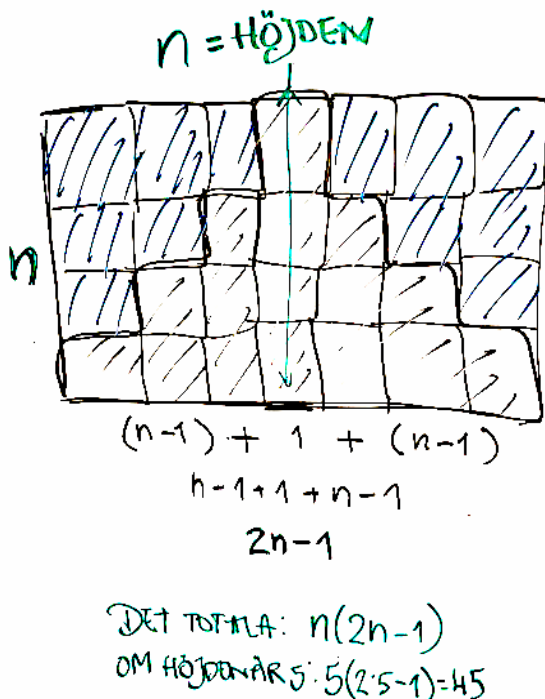 n = HÖJDEN
n
(n-1) + 1 + (n-1)
n-1+1+n-1
2n-1
DET TOTALA: n(2n-1)
OM HÖJDEN ÄR 5: 5(2·5-1)=45